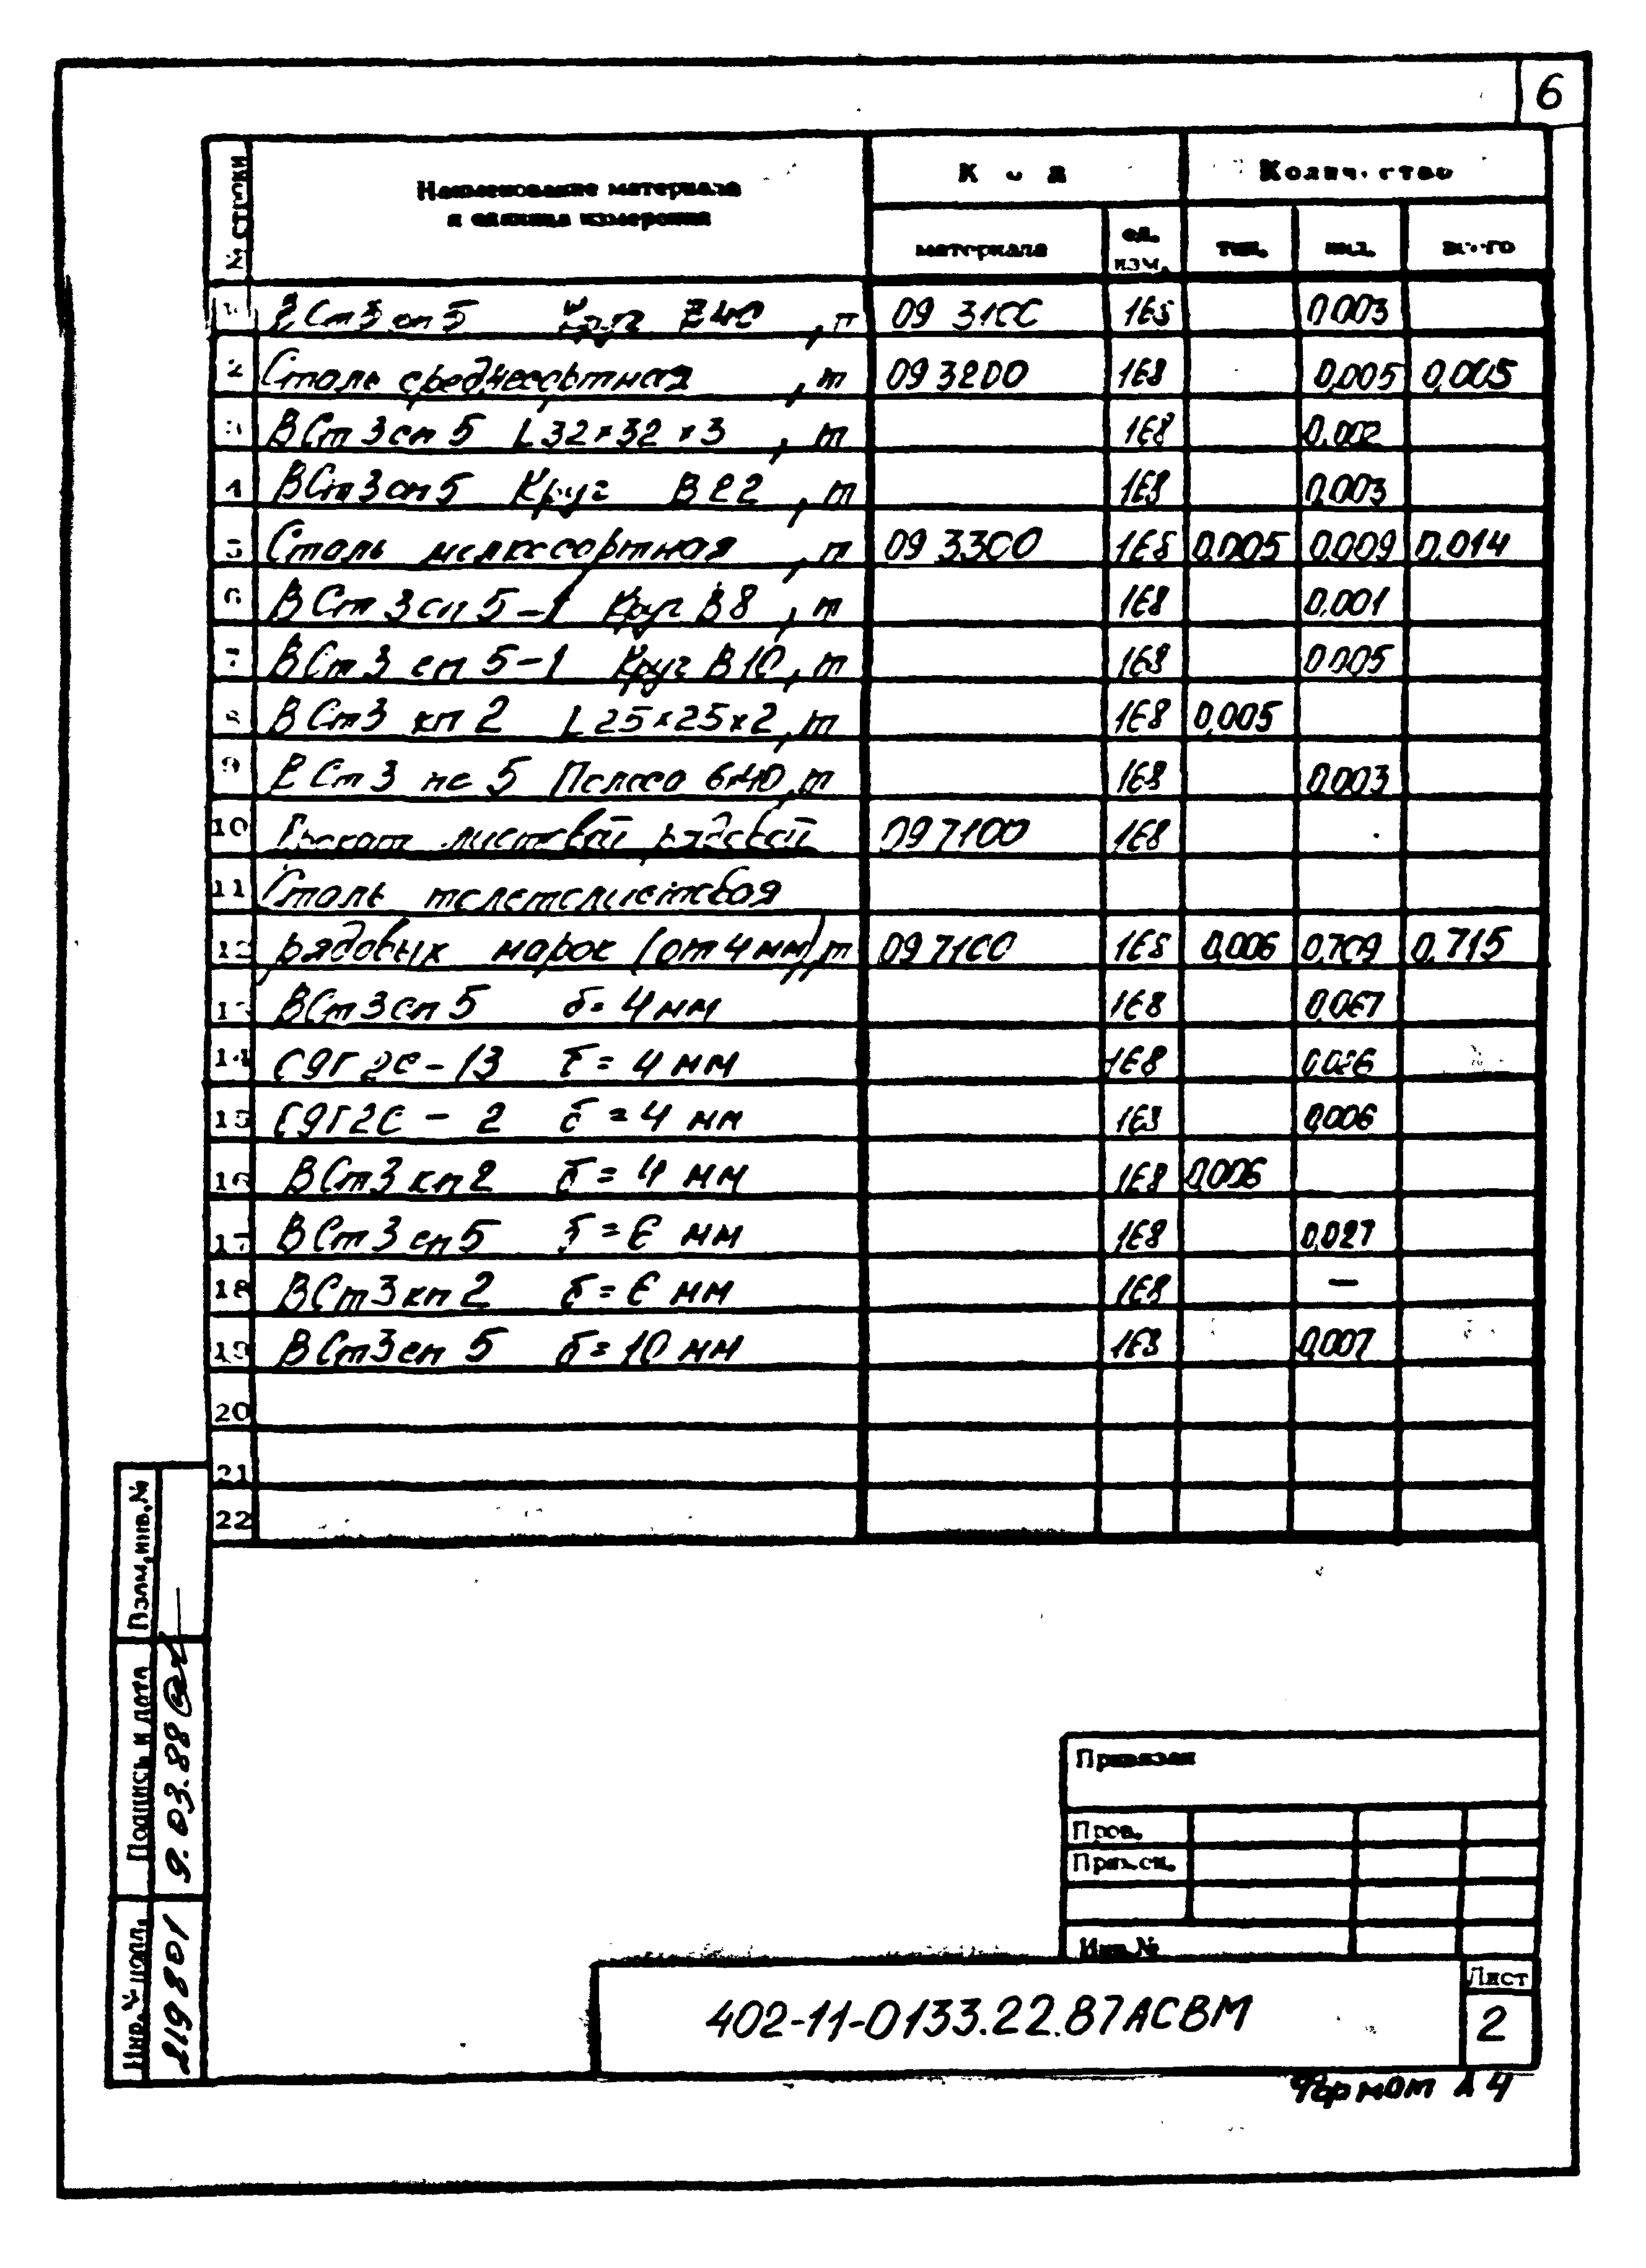 6
№ строки
Наименование материала
и единица измерения
Код
Количество
материала
ед. изм.
тип.
инд.
всего
1 ВСт3сп5 Круг В40, т 093100 168 0,003
2 Сталь среднесортная, т 093200 168 0,005 0,005
3 ВСт3сп5 L32×32×3, т 168 0,002
4 ВСт3сп5 Круг В22, т 168 0,003
5 Сталь мелкосортная, т 093300 168 0,005 0,009 0,014
6 ВСт3сп5-1 Круг В8, т 168 0,001
7 ВСт3сп5-1 Круг В10, т 168 0,005
8 ВСт3кп2 L25×25×2, т 168 0,005
9 ВСт3пс5 Полоса 6×40, т 168 0,003
10 Прокат листовой рядовой 097100 168
11 Сталь толстолистовая
12 рядовых марок (от 4 мм), т 097100 168 0,006 0,709 0,715
13 ВСт3сп5 б=4мм 168 0,067
14 С9Г2С-13 б=4 мм 168 0,026
15 С9Г2С-2 б=4 мм 168 0,006
16 ВСт3кп2 б=4 мм 168 0,006
17 ВСт3сп5 б=6 мм 168 0,027
18 ВСт3кп2 б=6 мм 168 —
19 ВСт3сп5 б=10 мм 168 0,007
20
21
22
Взам.инв.№
Подпись и дата
9.03.88
Инв.№ подл.
219801
Привязан
Пров.
Инв.№
402-11-0133.22.87АСВМ
Лист
2
Формат А4